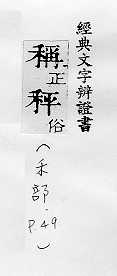 經典文字辨證書
稱正
秤俗
(禾部.
P.49
)